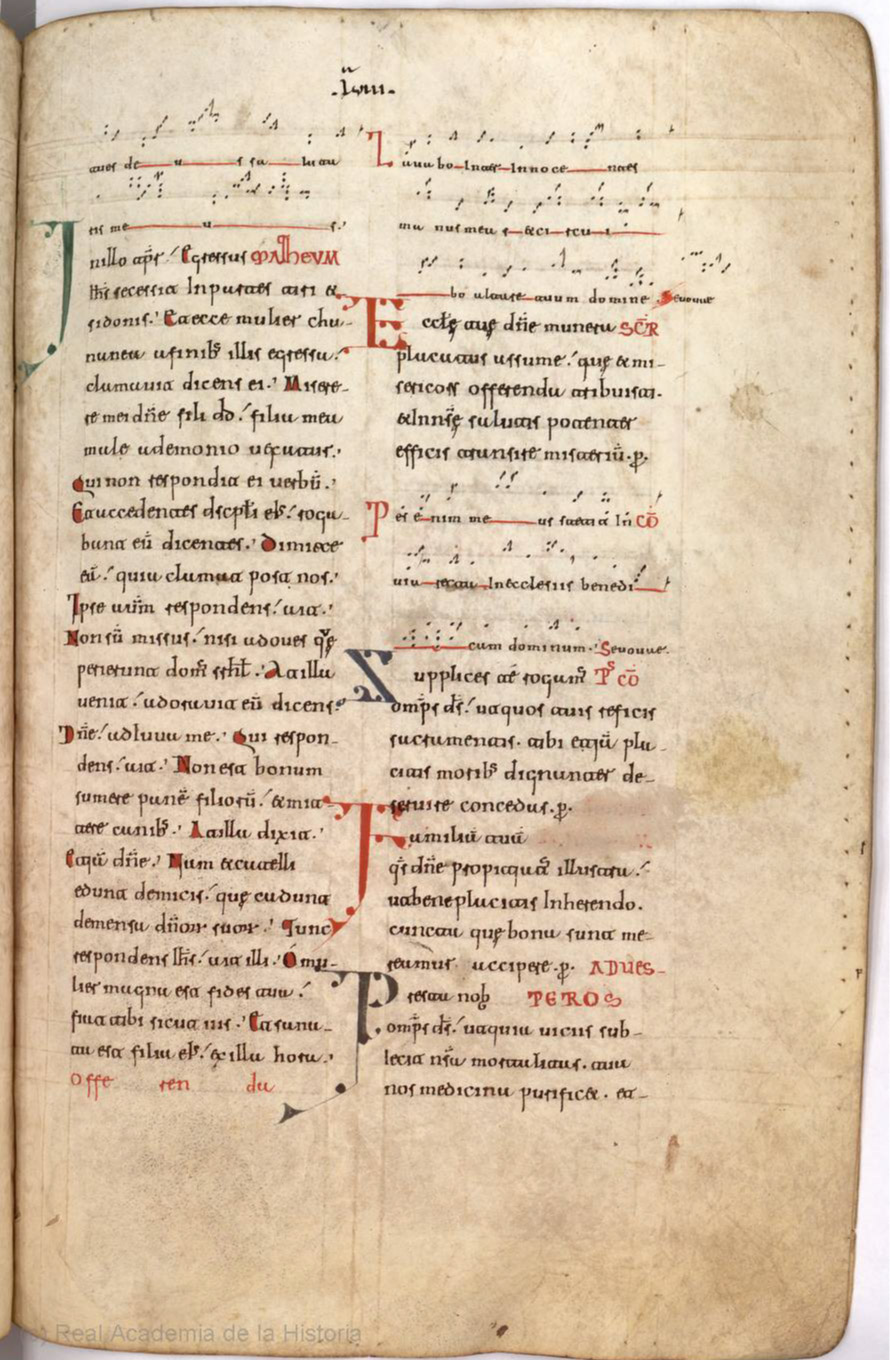 .lviii.
eis me us
J nillo apr̄s. Egressus MATHEVM
Ihs secessit In partes tiri &
sidonis. Et ecce mulier cha
nanea a finib; illis egressa.
clamauit dicens ei. Misere-
re mei dñe fili dd. filia mea
male a demonio uexatur.
Qui non respondit ei uerbū.
Et accedentes discpli ei'. roga-
bant eū dicentes. Dimitte
eā. quia clamat post nos.
Ipse autm respondens. ait.
Non sū missus. nisi ad oues quę
perierunt dom' isrhl. At illa
uenit. adorauit eū dicens.
Dñe. adiuua me. Qui respon-
dens. ait. Non est bonum
sumere panē filiorū. & mit-
tere canib;. At illa dixit.
Etiā dñe. Nam et catelli
edunt de micis. quę cadunt
de mensa dñorr suorr. Tunc
respondens Ihs. ait illi. O mu-
lier magna est fides tua.
fiat tibi sicut uis. Et sana-
ta est filia ei'. ex illa hora.
Offe ren da
L auabo Inter Innoce ntes
ma nus mea s &ci rcu i
bo altare tuum domine Seuouae
E cclę tuę dñe munera SCR
placatus assume. quę & mi-
sericors offerenda tribuisti.
& In nrę salutis potenter
efficis transire misteriū. p.
P es e nim me us stetit In CŌ
uia recta In ecclesiis benedi
cam dominum. Seuouae.
S upplices te rogam' Ps CŌ
omps ds. ut quos tuis reficis
sacramentis. tibi etiā pla-
citis morib; dignanter de-
seruire concedas. p.
F amiliā tuā
qs dñe propiquā illustra.
ut beneplacitis Inherendo.
cuncta quę bona sunt me-
reamur accipere. p. AD UES-
P resta nob TEROS
omps ds. ut quia uiciis sub-
lecta nra mortalitas. tua
nos medicina purific&. et
Real Academia de la Historia